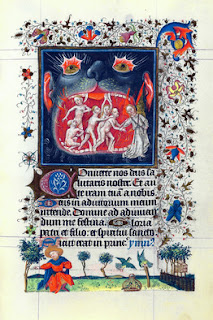 Conuerte nos deus sa
lutaris noster. Et auer
te iram tuā a nobis
Deus in adiutorium meum
intende. Domine ad adiuuan
dum me festina. Gloria
patri et filio: et spiritui sancto
Sicut erat in princ